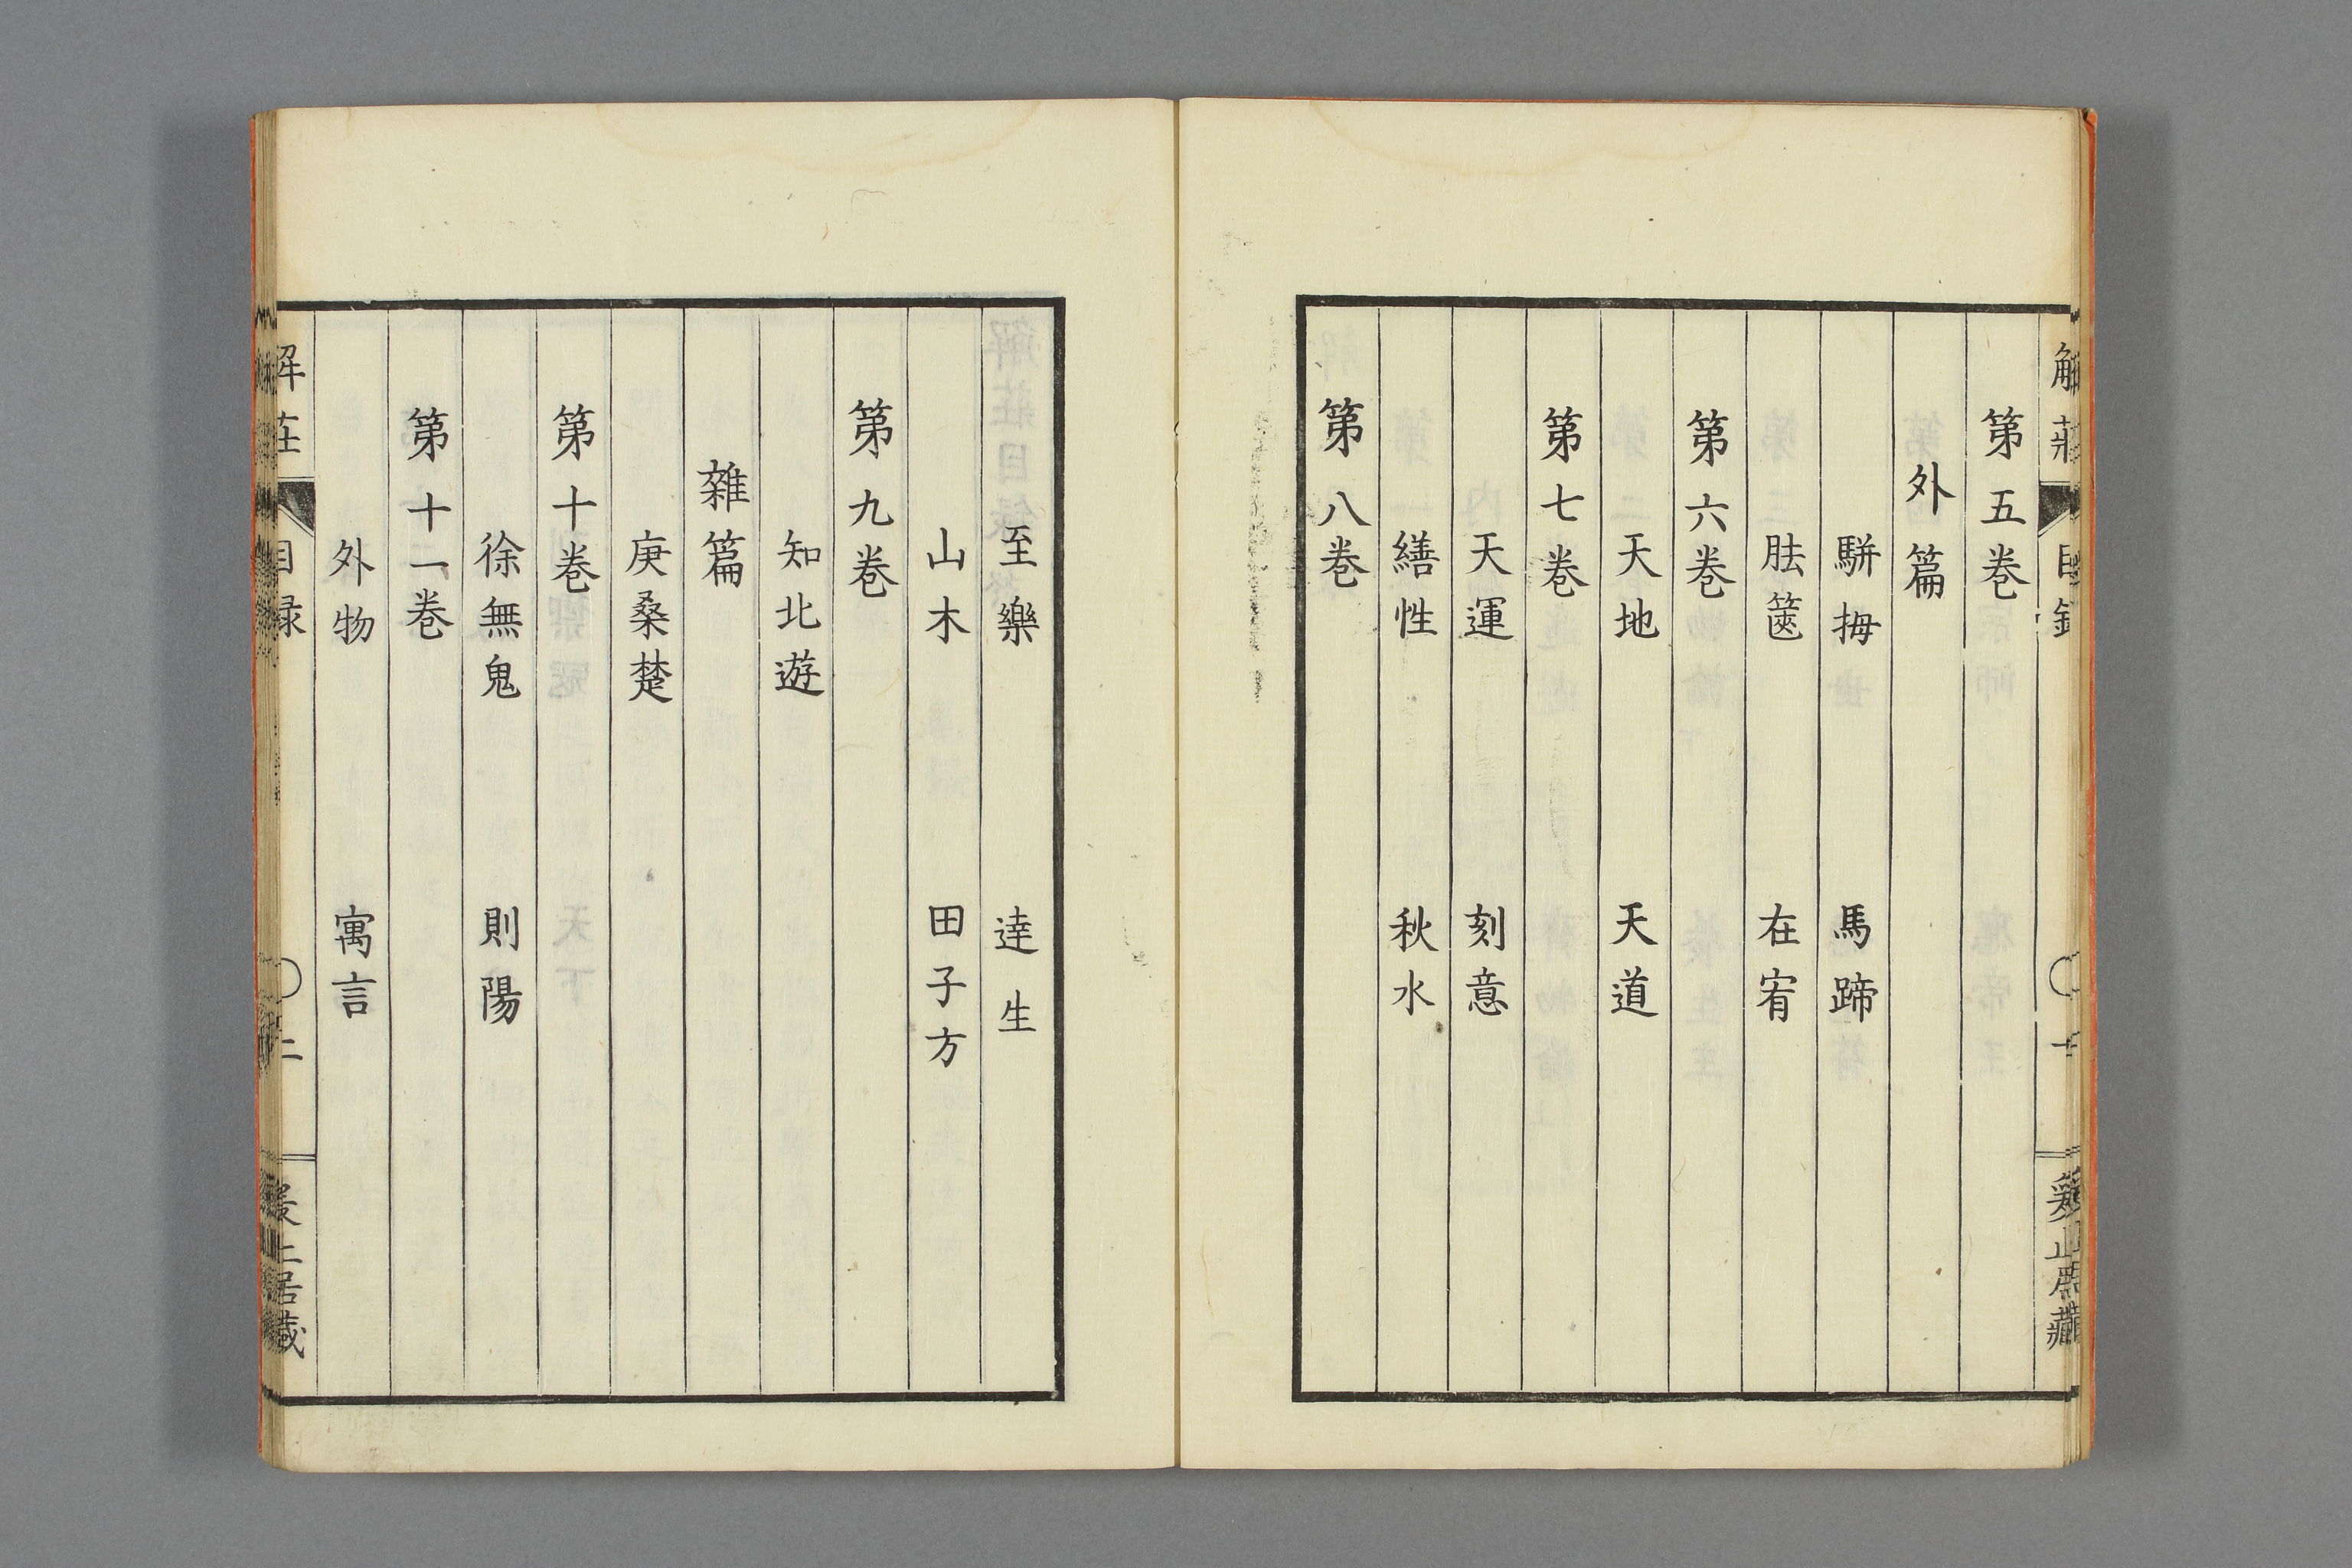 解莊 目錄 〇 一
第五卷
外篇
駢拇 馬蹄
胠篋 在宥
第六卷
天地 天道
第七卷
天運 刻意
繕性 秋水
第八卷
至樂 達生
山木 田子方
第九卷
知北遊
雜篇
庚桑楚
第十卷
徐無鬼 則陽
第十一卷
外物 寓言
解莊 目録 〇 二